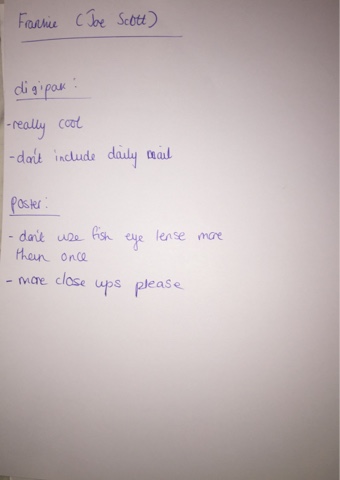 Frankie (Joe Scott)
digipak:
- really cool
- don't include daily mail
poster:
- don't use fish eye lense more
than once
- more close ups please